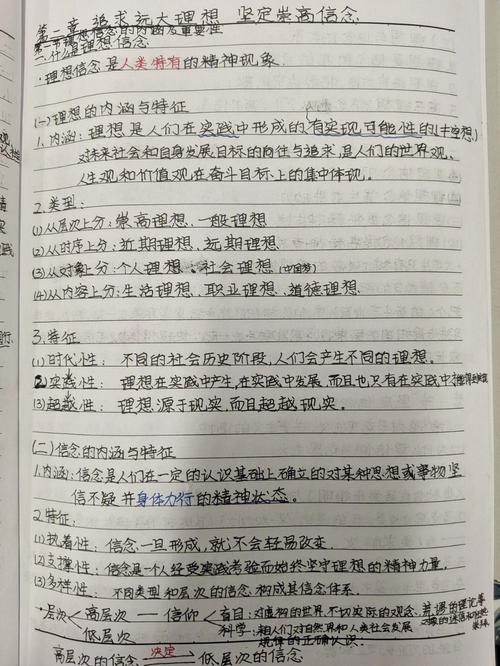 第二章 追求远大理想 坚定崇高信念
第一节 理想信念的内涵及重要性
一、什么是理想信念
·理想信念是人类特有的精神现象
(一)理想的内涵与特征
1.内涵:理想是人们在实践中形成的、有实现可能性的(≠空想)
对未来社会和自身发展目标的向往与追求,是人们的世界观、
人生观和价值观在奋斗目标上的集中体现。
2.类型:
(1)从层次上分:崇高理想、一般理想
(2)从时序上分:近期理想、远期理想
(3)从对象上分:个人理想、社会理想(中国梦)
(4)从内容上分:生活理想、职业理想、道德理想
3.特征
(1)时代性:不同的社会历史阶段,人们会产生不同的理想。
(2)实践性:理想在实践中产生,在实践中发展,而且也只有在实践中
(3)超越性:理想源于现实,而且超越现实。
(二)信念的内涵与特征
1.内涵:信念是人们在一定的认识基础上确立的对某种思想或事物坚
信不疑并身体力行的精神状态。
2.特征:
(1)执着性:信念一旦形成,就不会轻易改变.
(2)支撑性:信念是一个人经受实践考验而始终坚守理想的精神力量.
(3)多样性:不同类型和层次的信念,构成其信念体系.
·层次 高层次—信仰 盲目:对虚构的世界、不切实际的观念、荒谬的理论等
低层次 科学:是人们对自然界和人类社会发展
规律的正确认识.
高层次的信念 决定 低层次的信念